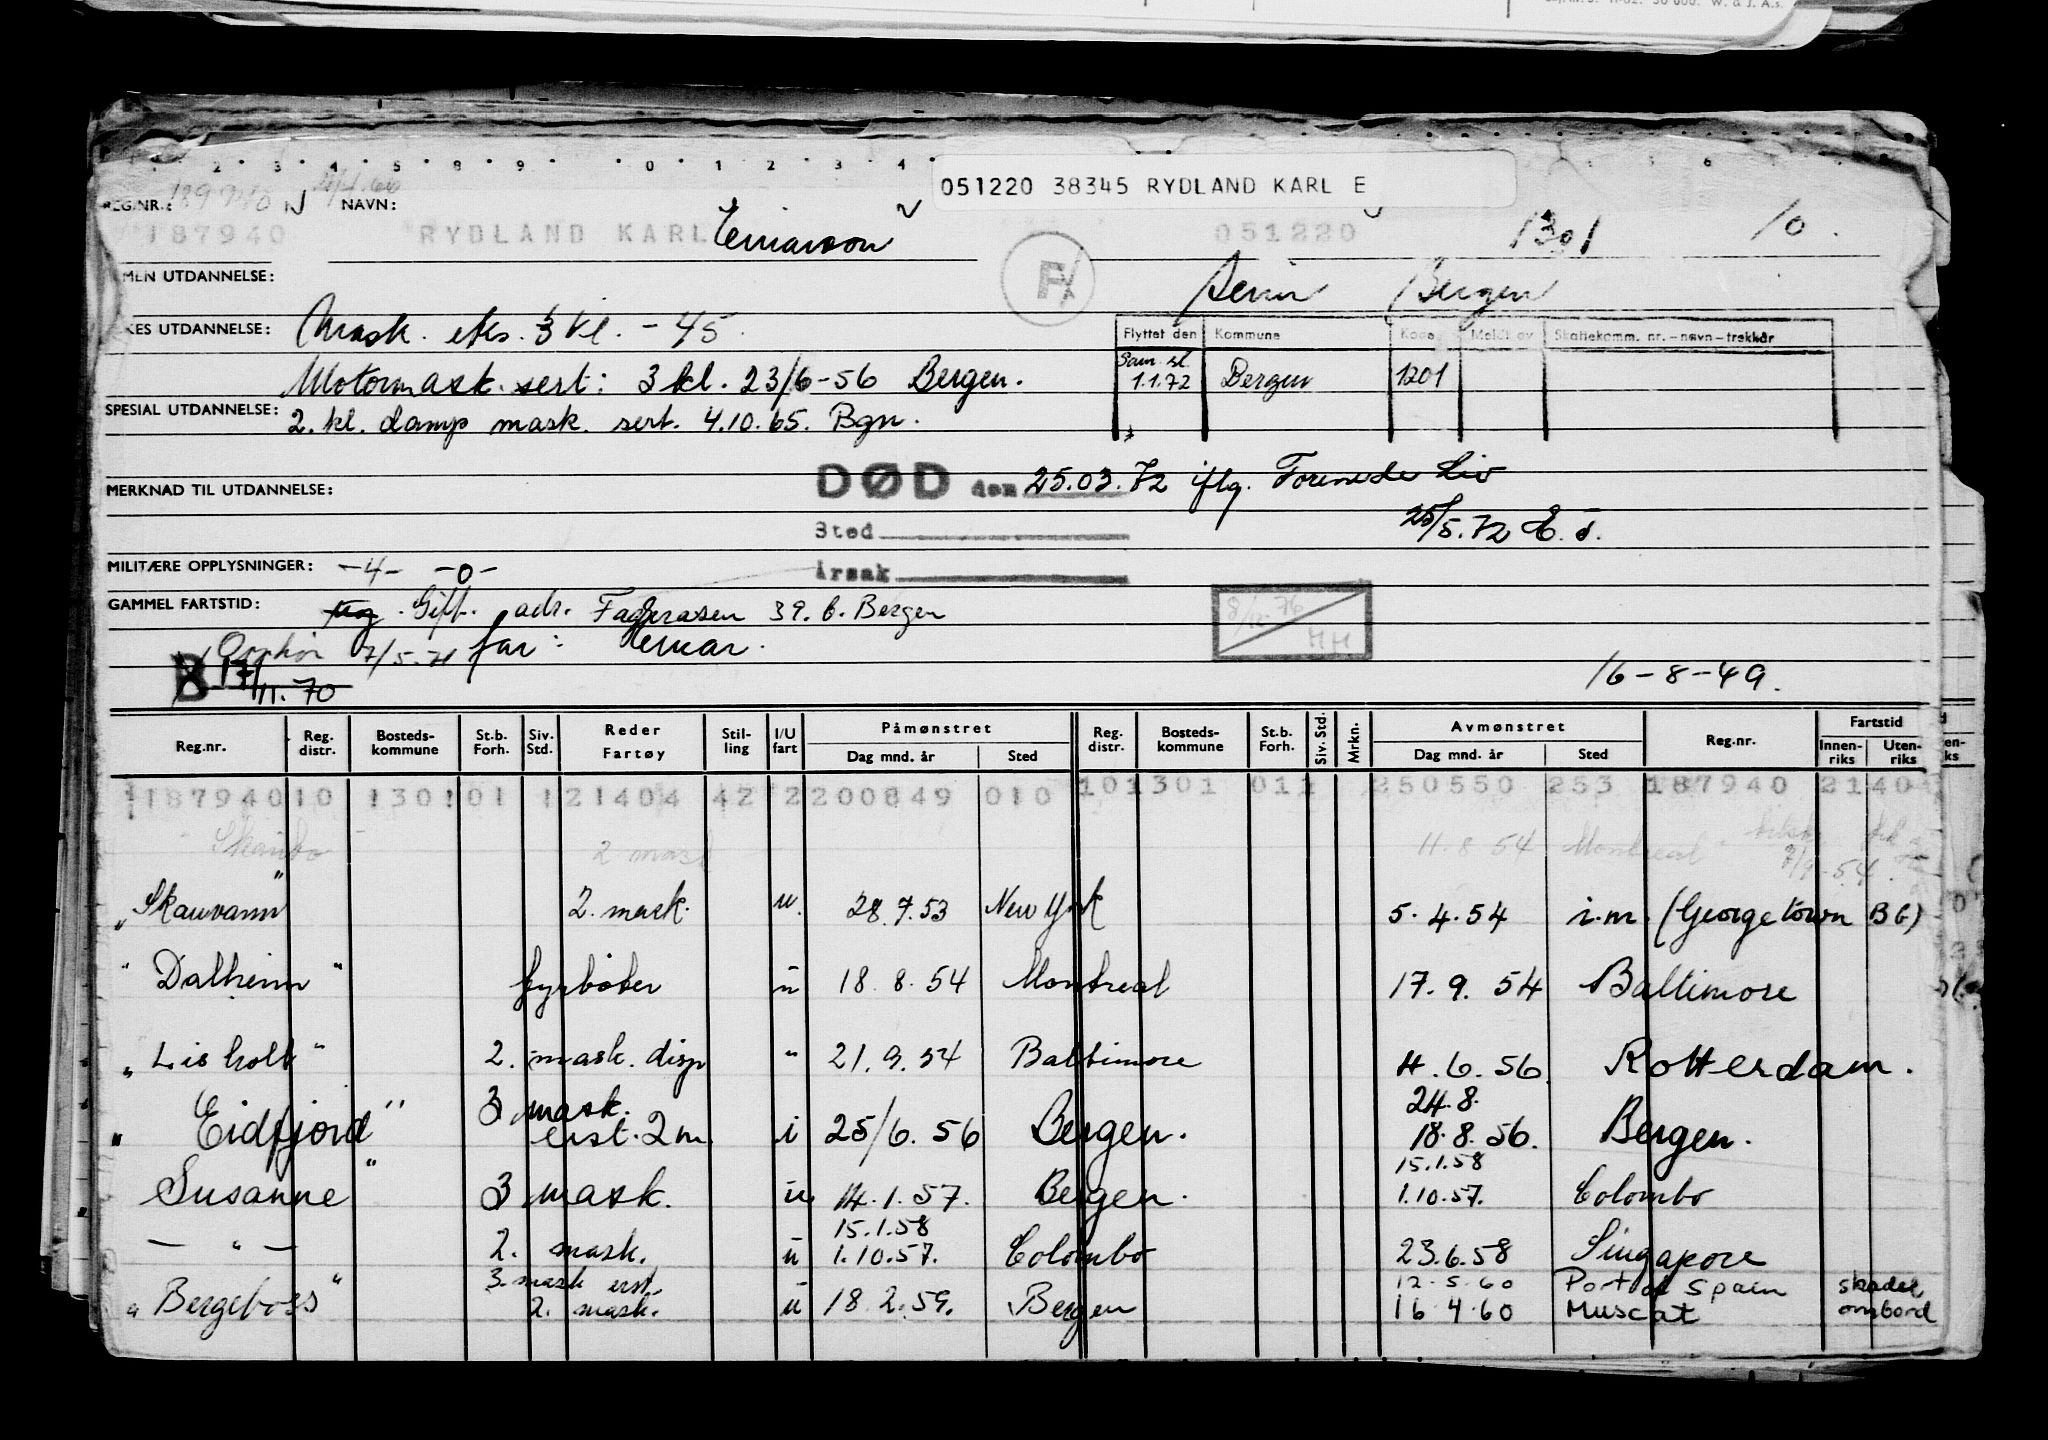 051220 38345 RYDLAND KARL E
REG.NR.: 189740 NAVN:
187940 RYDLAND KARL Einarson 051220 1301 10.
F
Bergen
UTDANNELSE:
UTDANNELSE: Mask. eks. 3 kl. - 45.
Flyttet den Kommune Meldt av Skattekomm. nr. - navn - trekkår
Motormask. sert: 3 kl. 23/6-56 Bergen.
1.1.72 Bergen 1201
SPESIAL UTDANNELSE: 2. kl. damp mask. sert. 4.10.65. Bgn.
MERKNAD TIL UTDANNELSE:
DØD den 25.03.72 iflg. Forenede Liv
Sted 25/5.72
MILITÆRE OPPLYSNINGER: -4- -0-
årsak
GAMMEL FARTSTID: ug. Gift. adr. Fageråsen 39. b. Bergen
8/12.76 HH
Opphør 7/5.71 far: Einar.
B 17/11.70
16-8-49.
Reg.nr. Reg. distr. Bosteds-kommune St.b. Forh. Siv. Std. Reder Fartøy Stil-ling I/U fart Påmønstret Dag mnd. år Sted Reg. distr. Bosteds-kommune St.b. Forh. Siv. Std. Mrkn. Avmønstret Dag mnd. år Sted Reg.nr. Fartstid Innen-riks Uten-riks
187940 10 1301 01 1 21404 42 2 200849 010 10 1301 011 250550 253 187940 2140
2. mask 11.8.54 Montreal
"Skauvann" 2. mask. u. 28.7.53 New York 5.4.54 i.m. (Georgetown BG)
"Dalheim" fyrbøter u 18.8.54 Montreal 17.9.54 Baltimore
"Lisholt" 2. mask. disp " 21.9.54 Baltimore 4.6.56 Rotterdam.
3 mask. 24.8.
"Eidfjord" erst. 2 m i 25/6.56 Bergen. 18.8.56. Bergen.
15.1.58
Susanne" 3 mask. u 14.1.57. Bergen. 1.10.57. Colombo
15.1.58
— " — 2. mask. u 1.10.57. Colombo 23.6.58 Singapore
3. mask erst. 12.5.60 Port of Spain skadet
"Bergeboss" 2. mask. u 18.2.59. Bergen 16.4.60 Muscat ombord